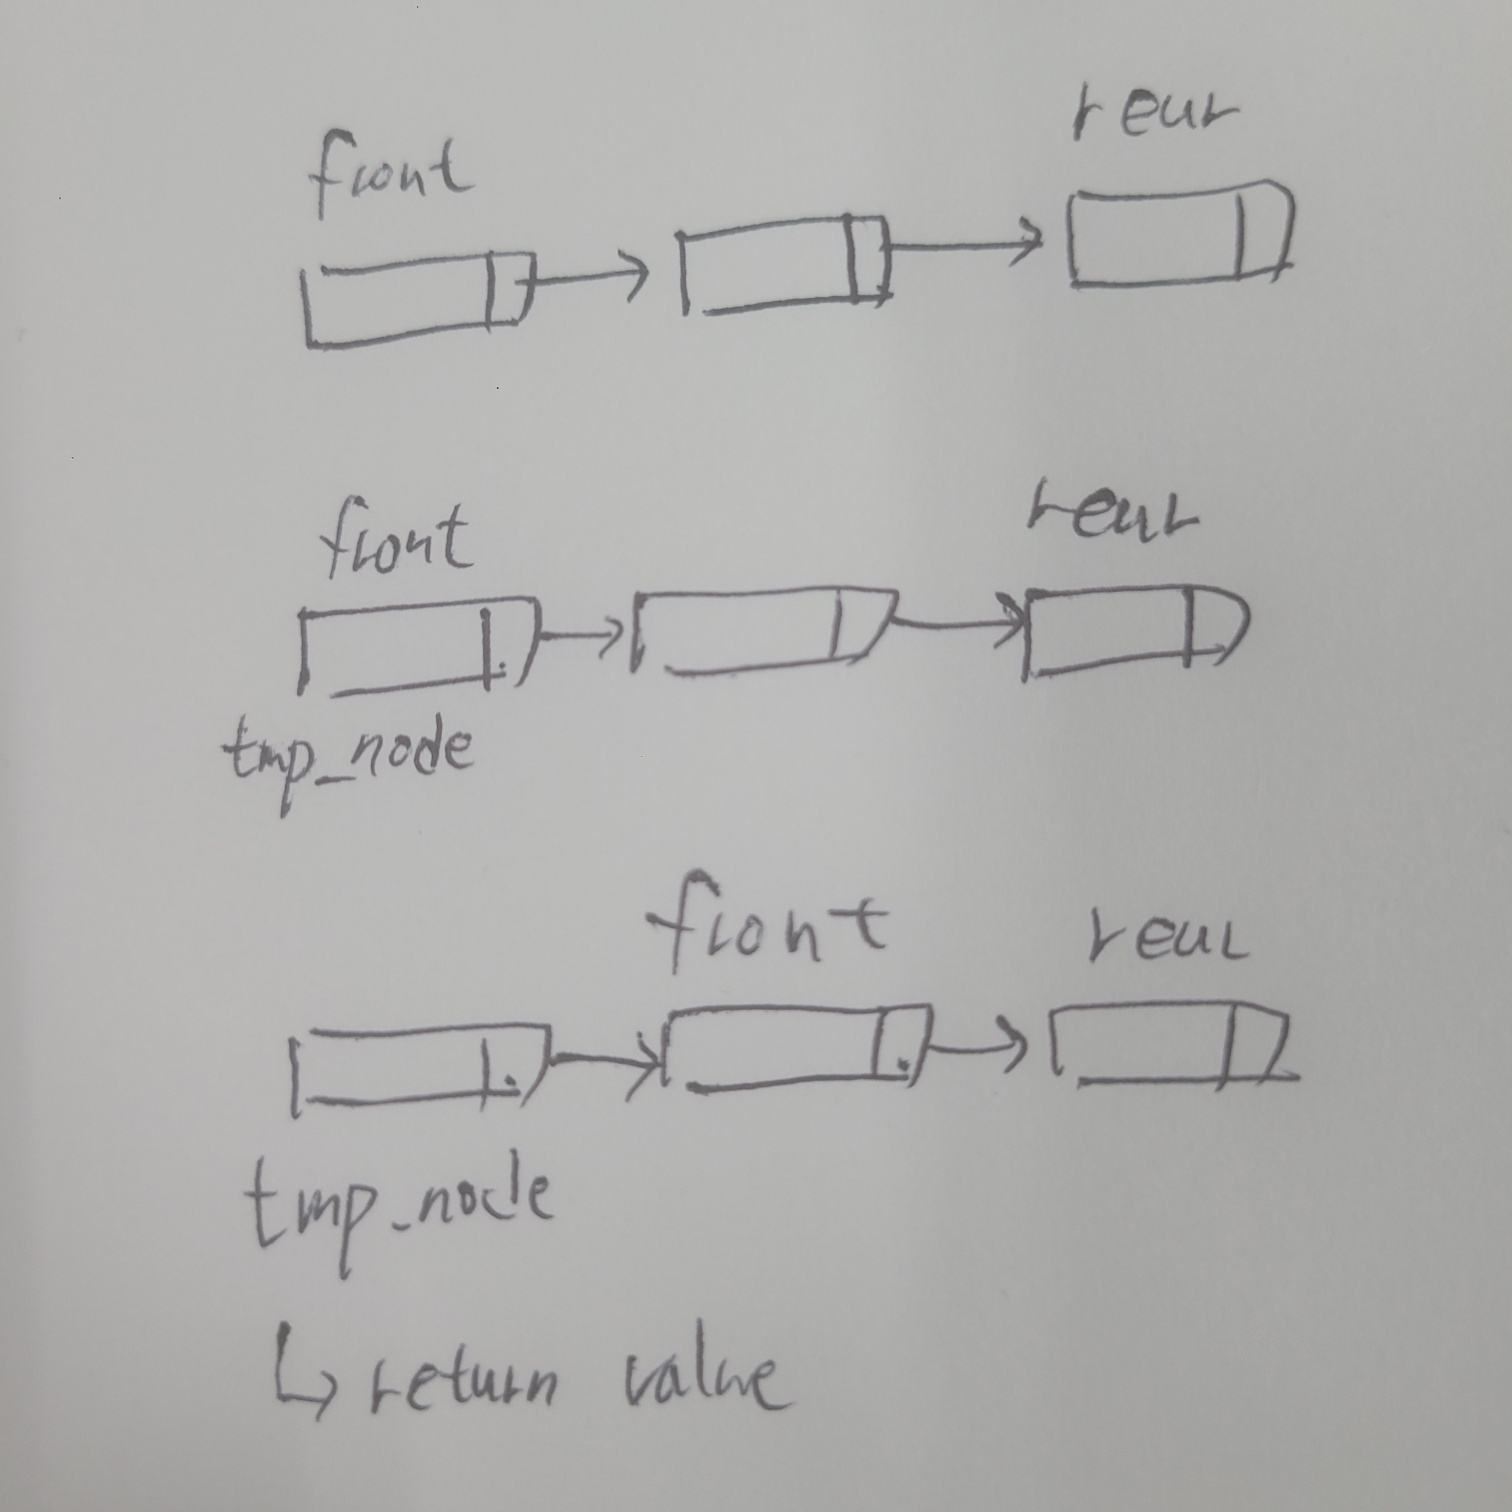 front rear
front rear
tmp_node
front rear
tmp_node
↳ return value